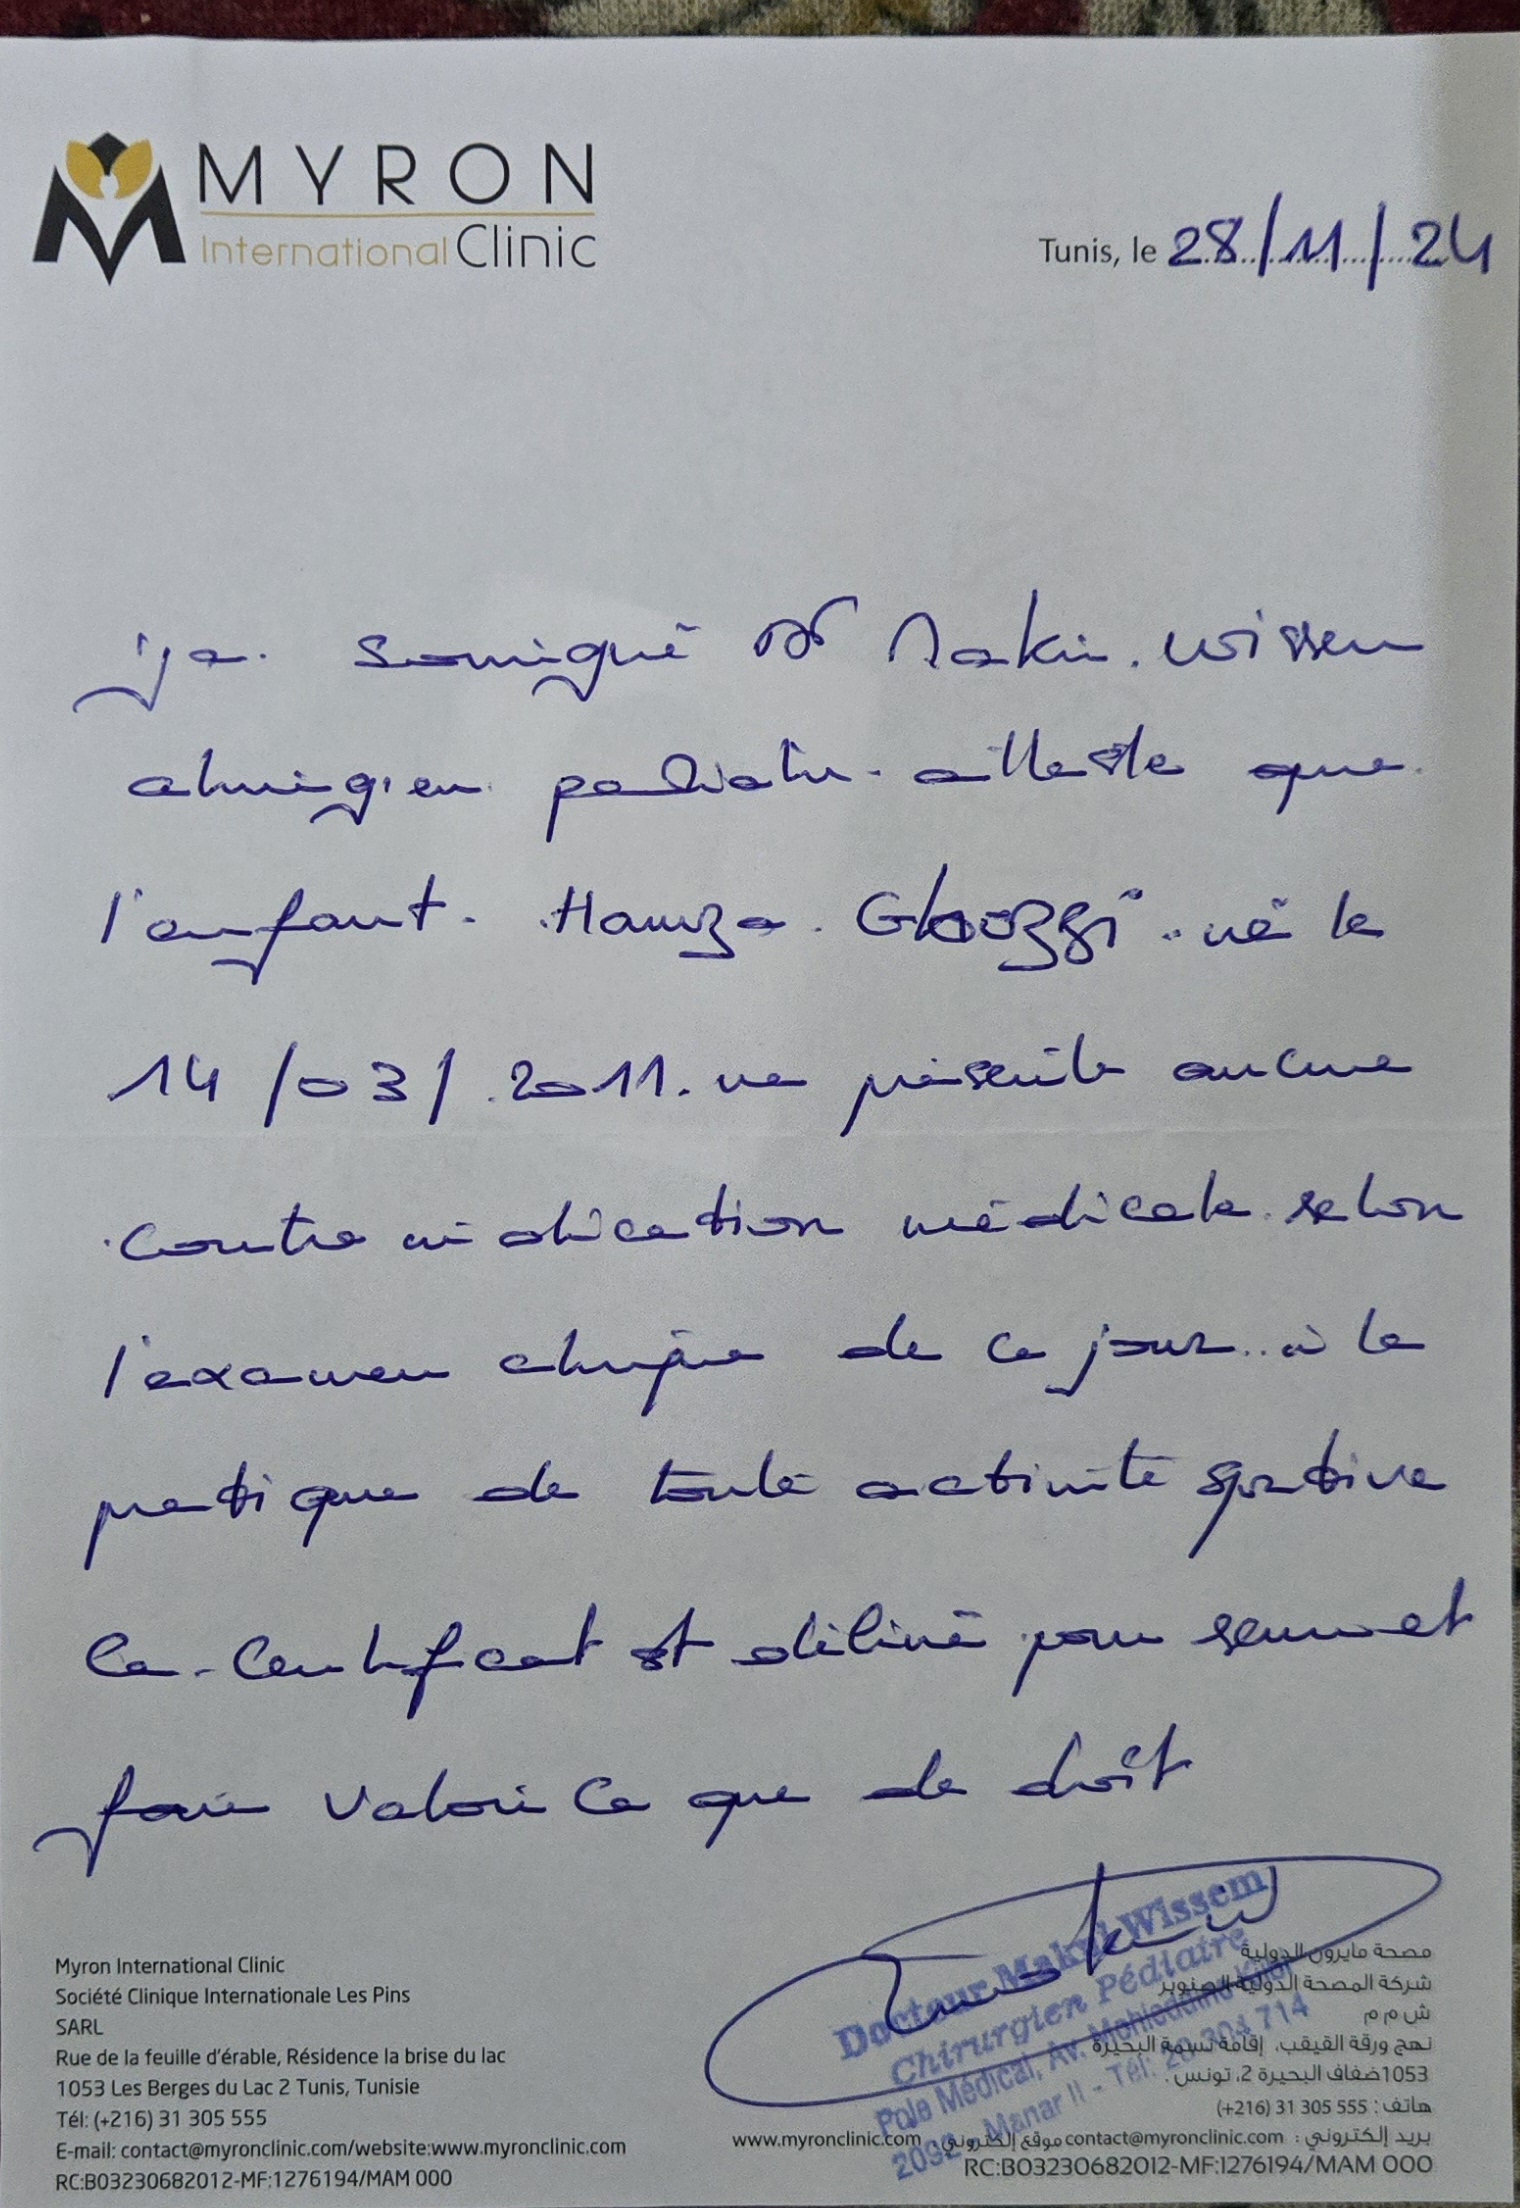 MYRON
International Clinic
Tunis, le 28/11/24
je soussigné Dr Makni Wissem
chirurgien pédiatre atteste que
l'enfant Hamza Ghozzi né le
14/03/2011 ne présente aucune
contre indication médicale selon
l'examen clinique de ce jour à la
pratique de toute activité sportive
Ce certificat est délivré pour servir et
faire valoir ce que de droit
Docteur Makni Wissem
Chirurgien Pédiatre
Pole Médical, Av. Mohieddine Klibi
2092 - Manar II - Tél: 20 304 714
Myron International Clinic
Société Clinique Internationale Les Pins
SARL
Rue de la feuille d'érable, Résidence la brise du lac
1053 Les Berges du Lac 2 Tunis, Tunisie
Tél: (+216) 31 305 555
E-mail: contact@myronclinic.com/website:www.myronclinic.com
RC:B03230682012-MF:1276194/MAM 000
مصحة مايرون الدولية
شركة المصحة الدولية الصنوبر
ش م م
نهج ورقة القيقب، إقامة نسمة البحيرة
1053 ضفاف البحيرة 2، تونس.
هاتف : 555 305 31 (216+)
بريد إلكتروني : contact@myronclinic.com موقع إلكتروني : www.myronclinic.com
RC:B03230682012-MF:1276194/MAM 000